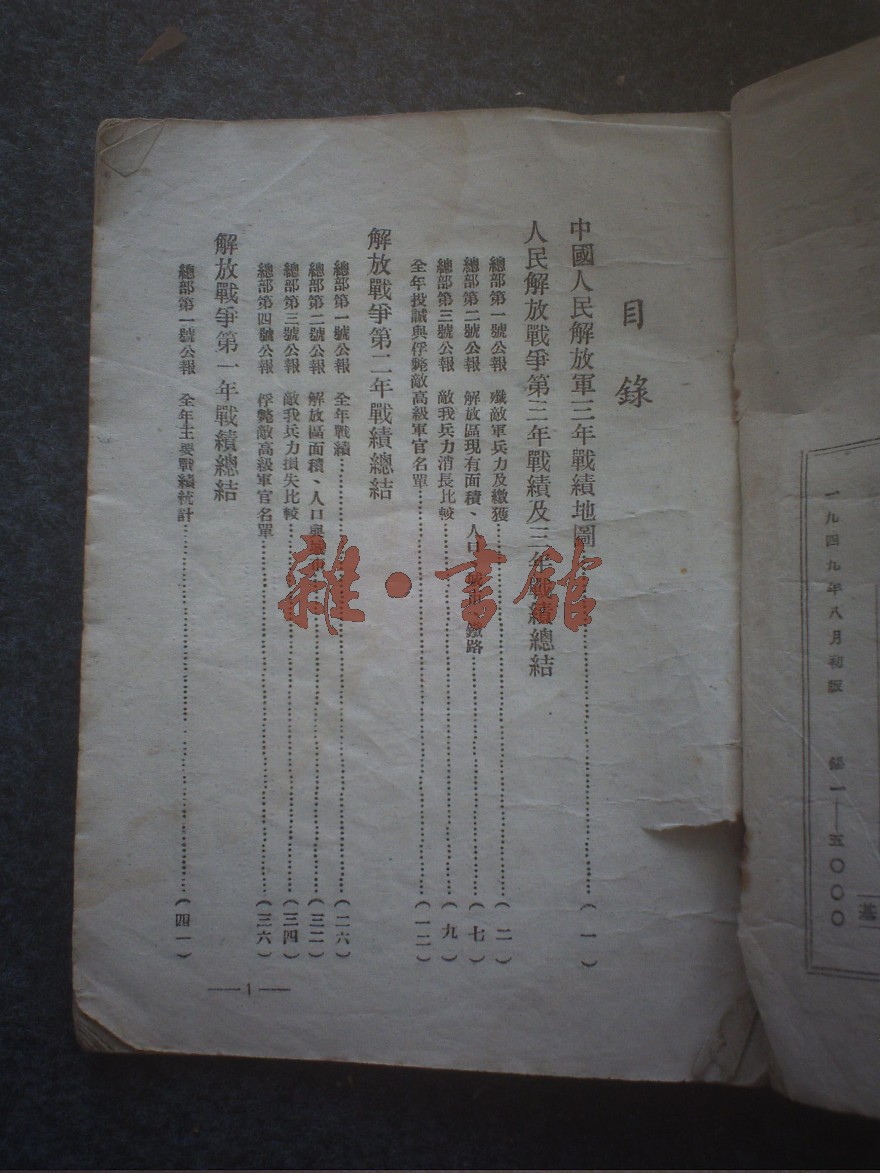 一九四九年八月初版　一—五〇〇〇
目錄
中國人民解放軍三年戰績地圖……（一）
人民解放戰爭第三年戰績及三年戰績總結
總部第一號公報　殲敵軍兵力及繳獲……（二）
總部第二號公報　解放區現有面積、人口、城市、鐵路……（七）
總部第三號公報　敵我兵力消長比較……（九）
全年投誠與俘斃敵高級軍官名單……（一二）
解放戰爭第二年戰績總結
總部第一號公報　全年戰績……（二六）
總部第二號公報　解放區面積、人口與城市……（三二）
總部第三號公報　敵我兵力損失比較……（三四）
總部第四號公報　俘斃敵高級軍官名單……（三六）
解放戰爭第一年戰績總結
總部第一號公報　全年主要戰績統計……（四一）
—1—
雜·書館